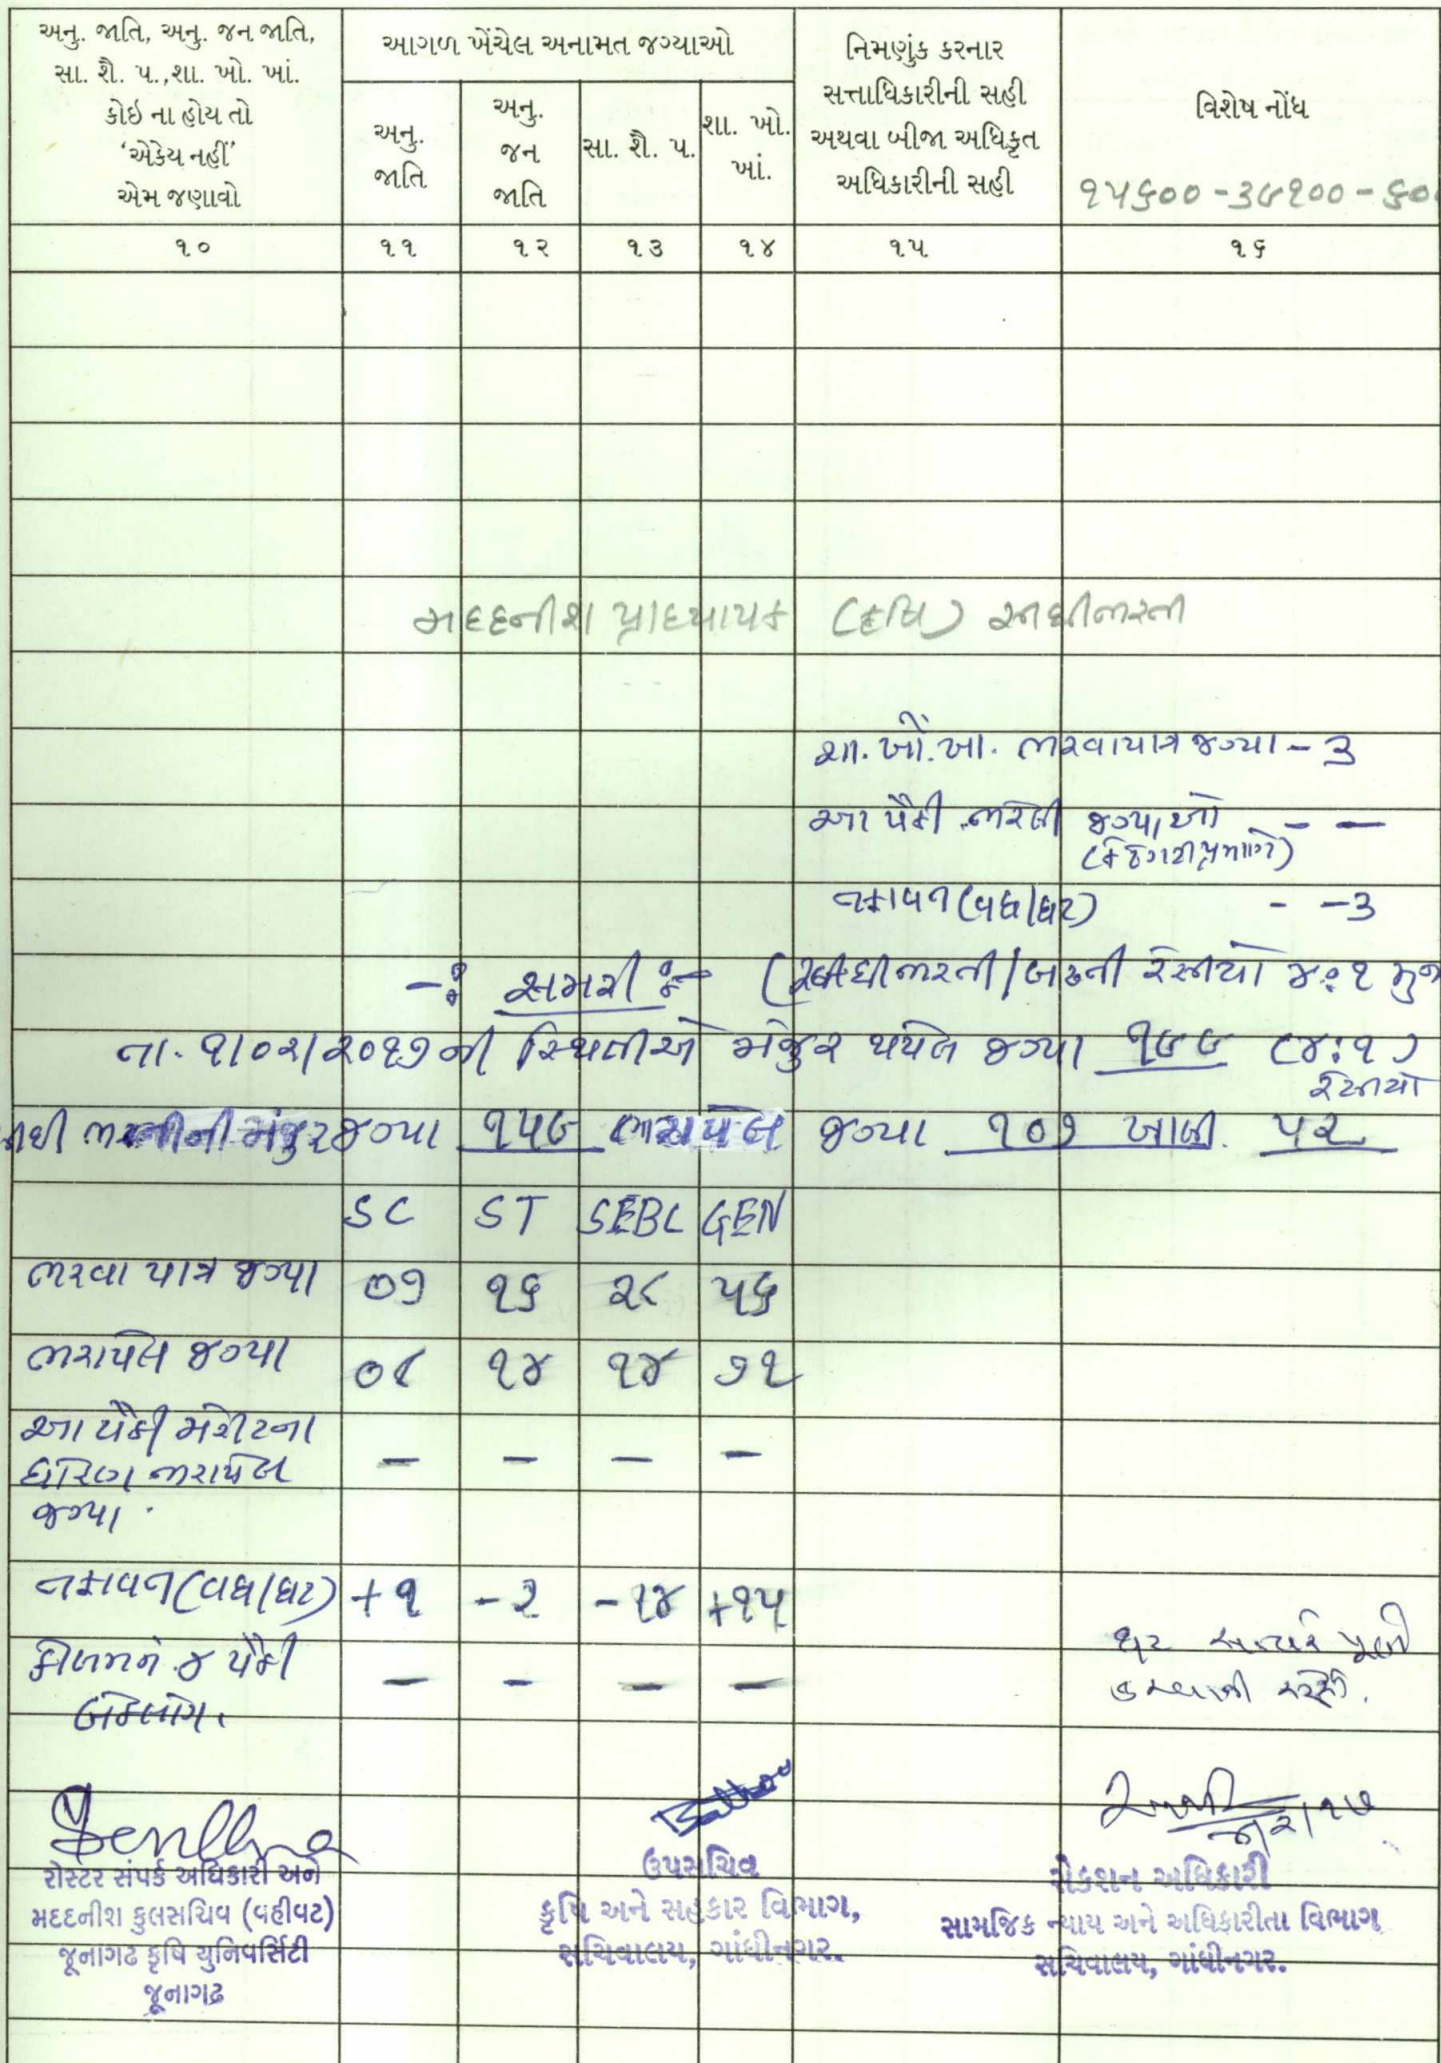 અનુ. જાતિ, અનુ. જન જાતિ,
સા. શૈ. પ.,શા. ખો. ખાં.
કોઇ ના હોય તો
‘એકેય નહીં’
એમ જણાવો
આગળ ખેંચેલ અનામત જગ્યાઓ
અનુ.
જાતિ
અનુ.
જન
જાતિ
સા. શૈ. પ.
શા. ખો.
ખાં.
નિમણુંક કરનાર
સત્તાધિકારીની સહી
અથવા બીજા અધિકૃત
અધિકારીની સહી
વિશેષ નોંધ
૧૫૬૦૦-૩૯૧૦૦-૬૦
૧૦ ૧૧ ૧૨ ૧૩ ૧૪ ૧૫ ૧૬
મદદનીશ પ્રાધ્યાપક (કૃષિ) સીધીભરતી
શા.ખો.ખા. ભરવાપાત્ર જગ્યા - 3
આ પૈકી ભરેલી જગ્યાઓ - —
(કેટેગરી પ્રમાણે)
તફાવત (વધ/ઘટ) - -3
-: સમરી :- (સીધીભરતી/બઢતી રેસીયો ૪:૧ મુજ
તા. ૧/૦૨/૨૦૧૭ ની સ્થિતીએ મંજુર થયેલ જગ્યા ૧૯૯ (૪:૧)
રેસીયો
સીધી ભરતીની મંજુર જગ્યા ૧૫૯ ભરાયેલ જગ્યા ૧૦૭ ખાલી ૫૨
SC ST SEBC GEN
ભરવા પાત્ર જગ્યા ૦૭ ૧૬ ૨૮ ૫૬
ભરાયેલ જગ્યા ૦૮ ૧૪ ૧૪ ૭૧
આ પૈકી મેરીટના — — — —
ધોરણે ભરાયેલ
જગ્યા.
તફાવત (વધ/ઘટ) +૧ -૨ -૧૪ +૧૫
કોલમનં. ૪ પૈકી — — — —
બેકલોગ.
ઘટ સત્વરે પુરી
કરવાની રહેશે.
રોસ્ટર સંપર્ક અધિકારી અને
મદદનીશ કુલસચિવ (વહીવટ)
જૂનાગઢ કૃષિ યુનિવર્સિટી
જૂનાગઢ
ઉપસચિવ
કૃષિ અને સહકાર વિભાગ,
સચિવાલય, ગાંધીનગર.
સેકશન અધિકારી
સામજિક ન્યાય અને અધિકારીતા વિભાગ
સચિવાલય, ગાંધીનગર.